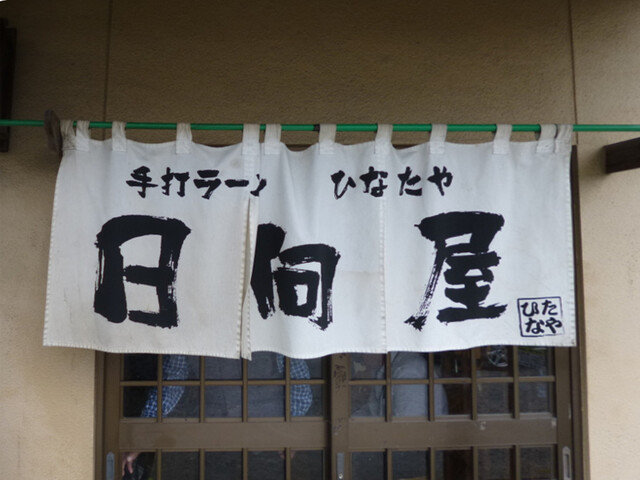 手打ラーメン ひなたや
日向屋
ひなたや